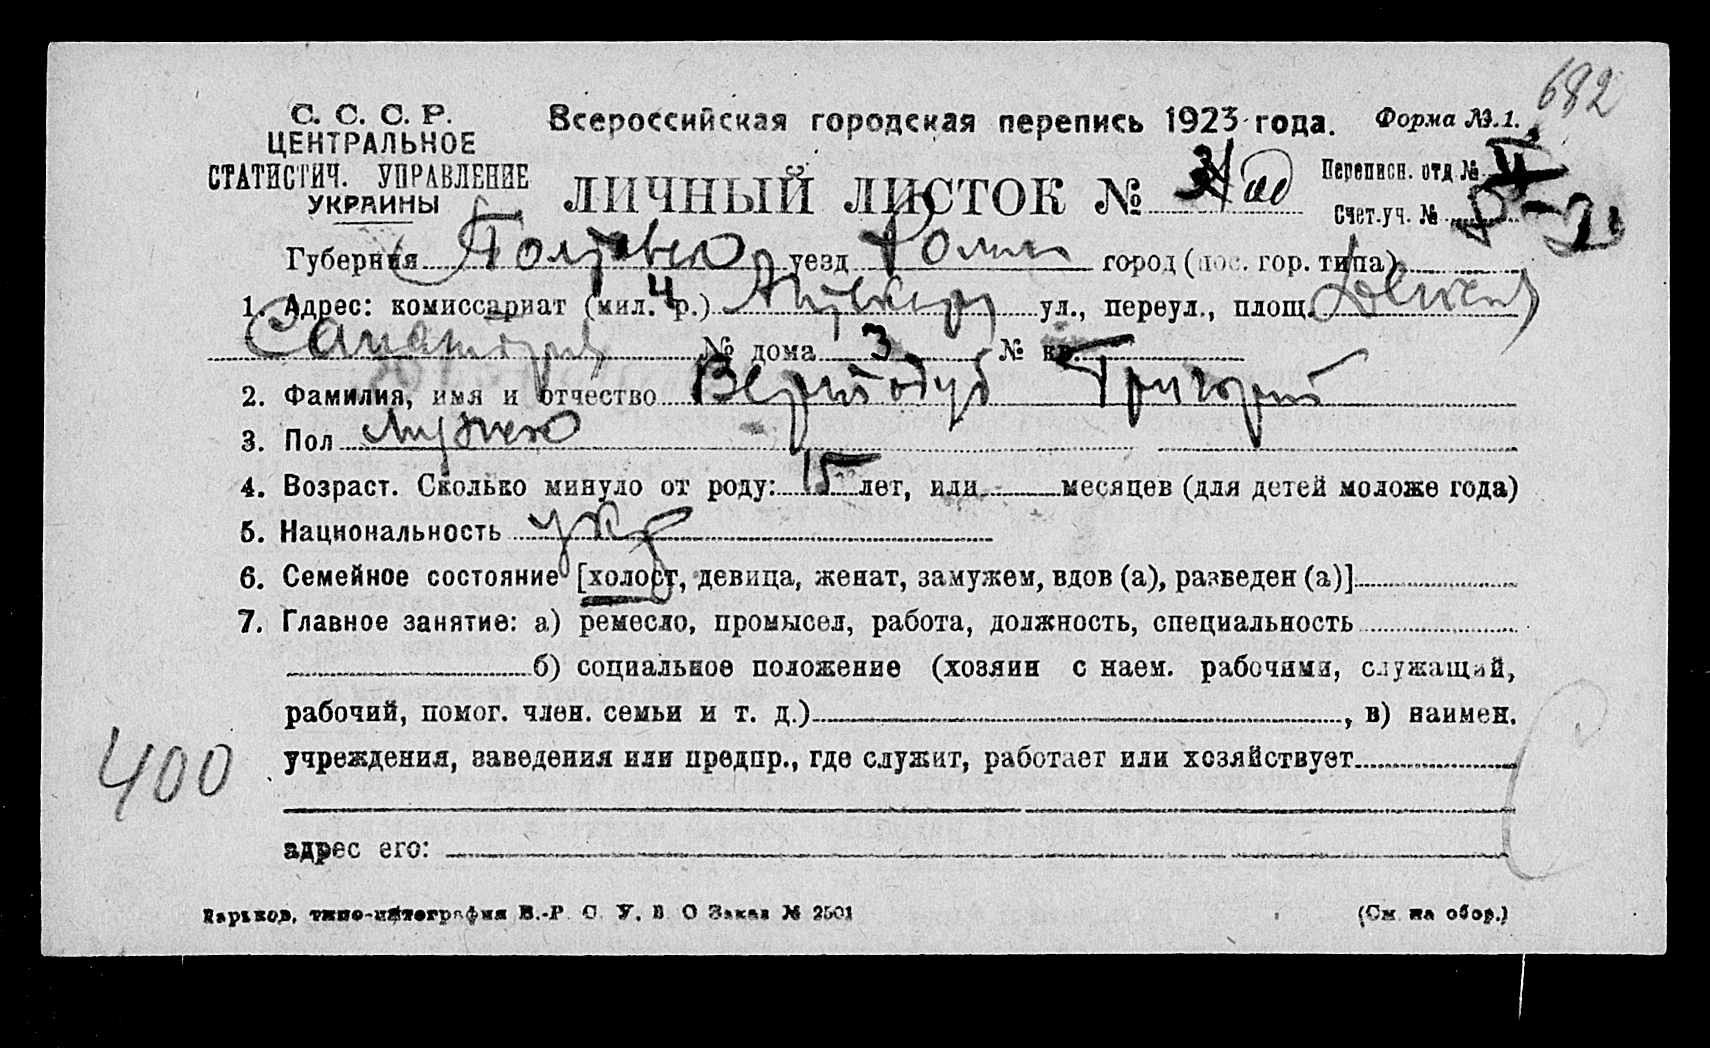 682
С. С. С. Р.
ЦЕНТРАЛЬНОЕ
СТАТИСТИЧ. УПРАВЛЕНИЕ
УКРАИНЫ
Всероссийская городская перепись 1923 года. Форма №.1.
ЛИЧНЫЙ ЛИСТОК №
Переписн. отд №
Счет.уч. №
Губерния Полтавско уезд Ромны город (пос. гор. типа)
1. Адрес: комиссариат (мил. р.) 4 ул., переул., площ.
Санатория № дома 3 № кв.
2. Фамилия, имя и отчество Вернодуб Григорий
3. Пол Мужско
4. Возраст. Сколько минуло от роду: 15 лет, или месяцев (для детей моложе года)
5. Национальность укр
6. Семейное состояние [холост, девица, женат, замужем, вдов (а), разведен (а)]
7. Главное занятие: а) ремесло, промысел, работа, должность, специальность
б) социальное положение (хозяин с наем. рабочими, служащий,
рабочий, помог. член. семьи и т. д.), в) наимен.
учреждения, заведения или предпр., где служит, работает или хозяйствует
400
адрес его:
Харьков, типо-литография В.-Р. С. У. В. О Заказ № 2501 (См. на обор.)